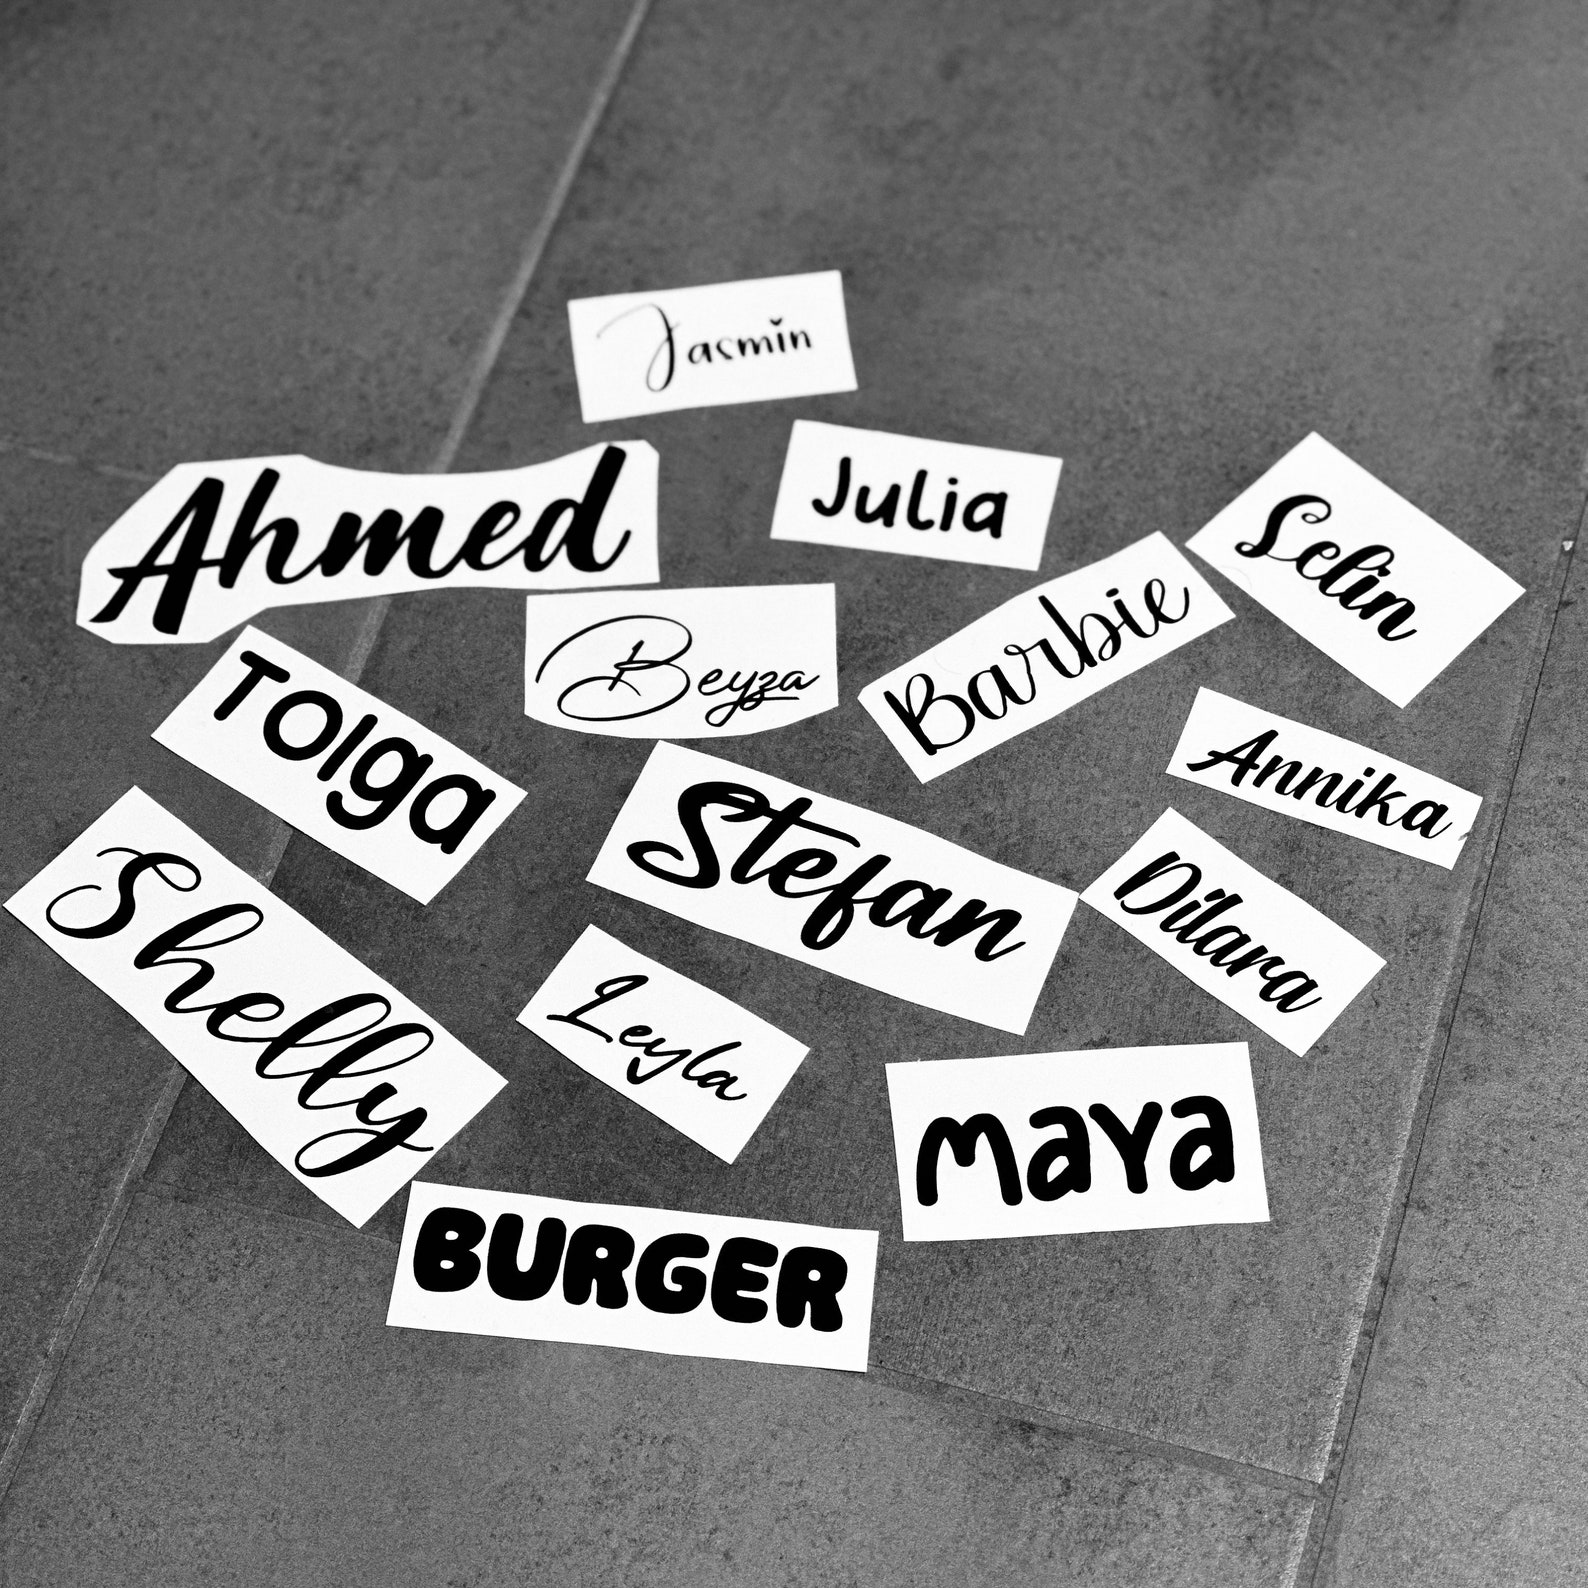 Jasmin
Julia
Ahmed
Selin
Barbie
Beyza
Tolga
Annika
Stefan
Dilara
Shelly
Leyla
Maya
BURGER